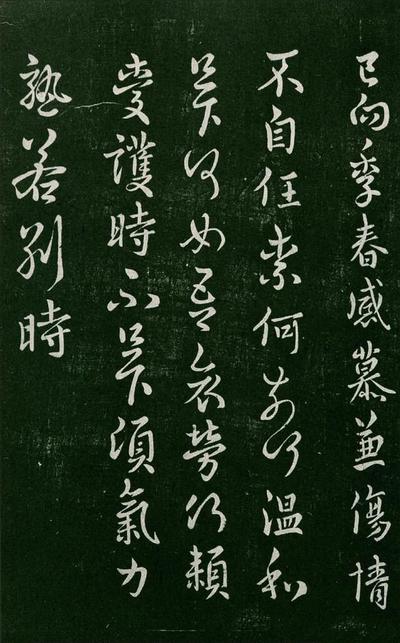 已向季春感慕兼傷情
不自任柰何溫和
足下何如吾哀勞何賴
愛護時不足下須氣力
孰若別時